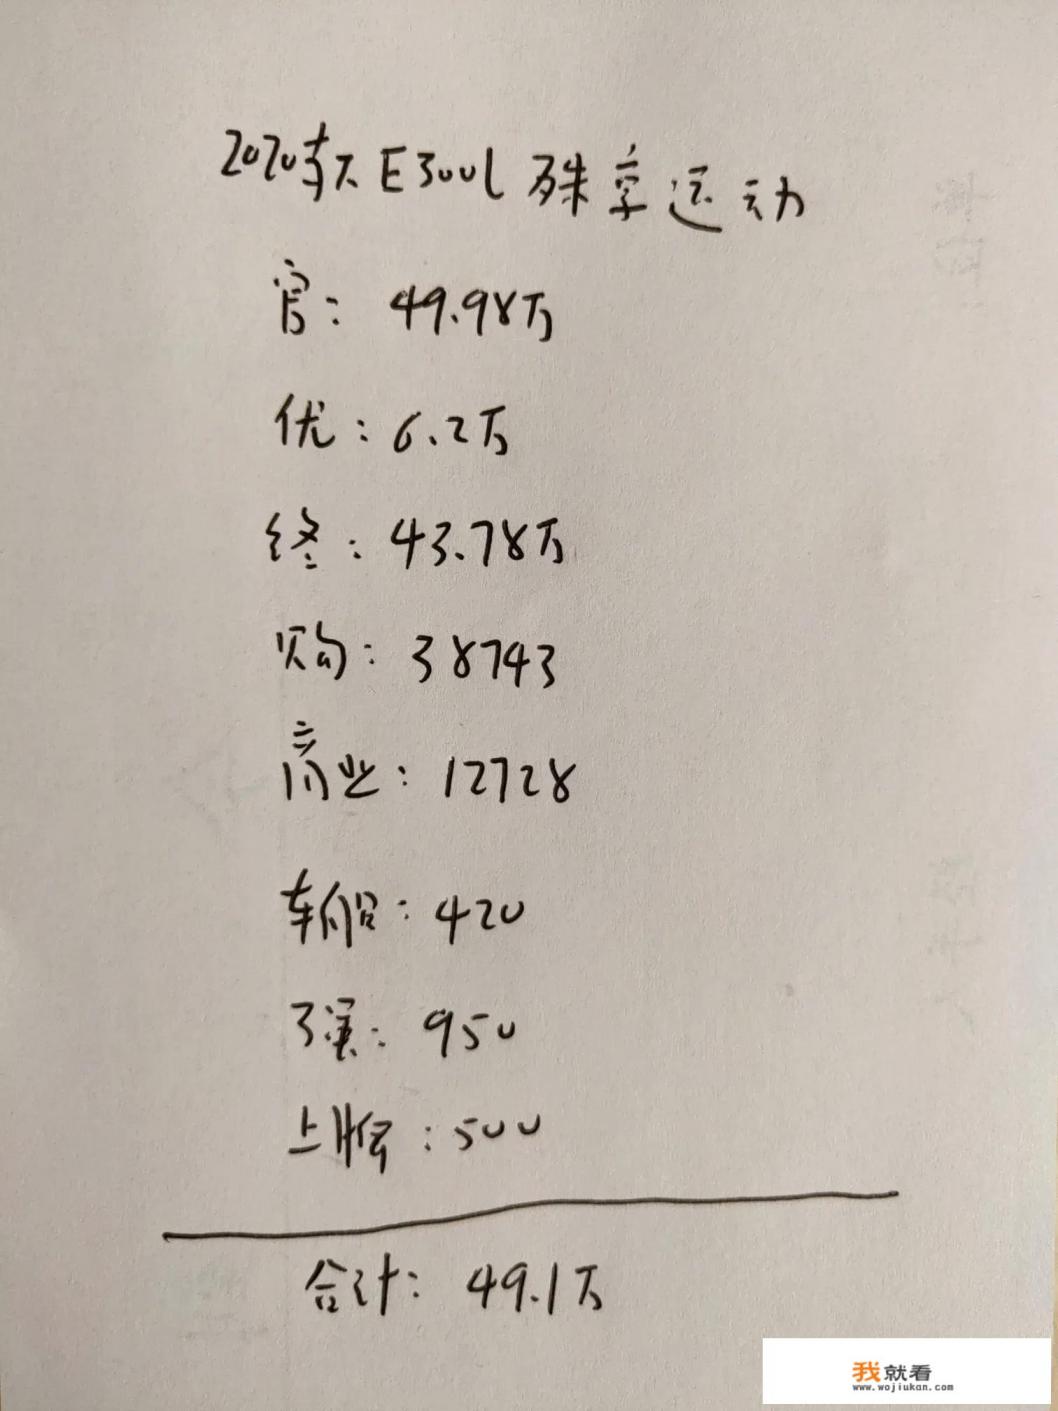 2020款 E300L 豪享运动
官: 49.98万
优: 6.2万
终: 43.78万
购: 38743
商业: 12728
车船: 420
了强: 950
上牌: 500
合计: 49.1万
我就看
www.wojiukan.com